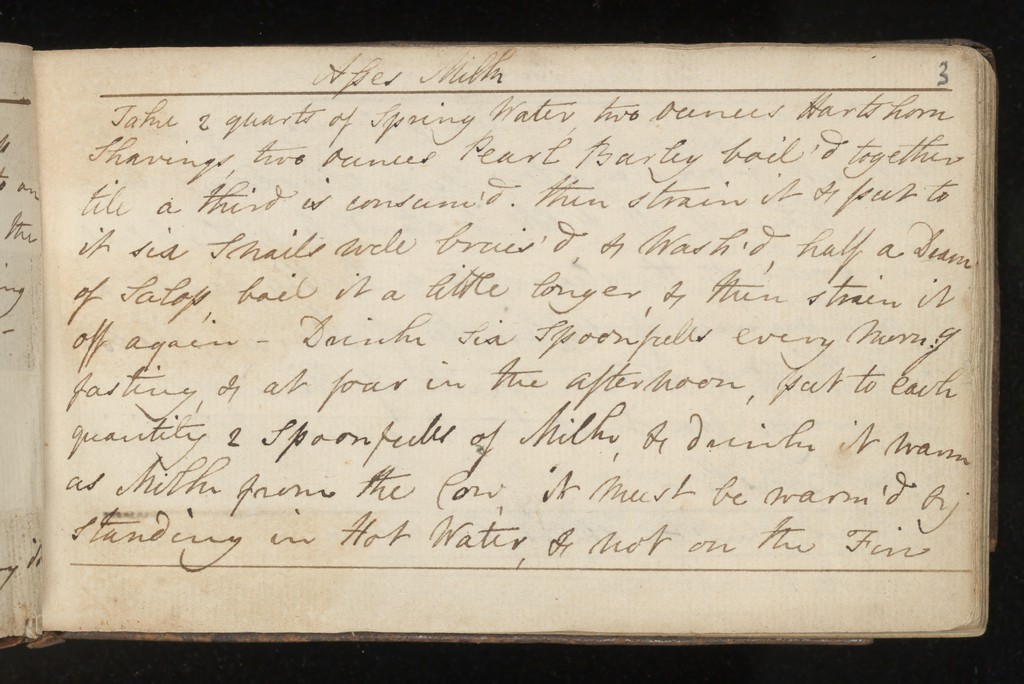 Asses Milk
3
Take 2 quarts of Spring Water, two ounces Hartshorn
Shavings, two ounces Pearl Barley boil'd together
till a third is consum'd. then strain it & put to
it six Snails well bruis'd, & Wash'd, half a Dram
of Salop, boil it a little longer, & then strain it
off again – Drink six Spoonfulls every Morng
fasting, & at four in the afternoon, put to each
quantity 2 Spoonfulls of Milk, & drink it warm
as Milk from the Cow, it must be warm'd by
standing in Hot Water, & not on the Fire
the